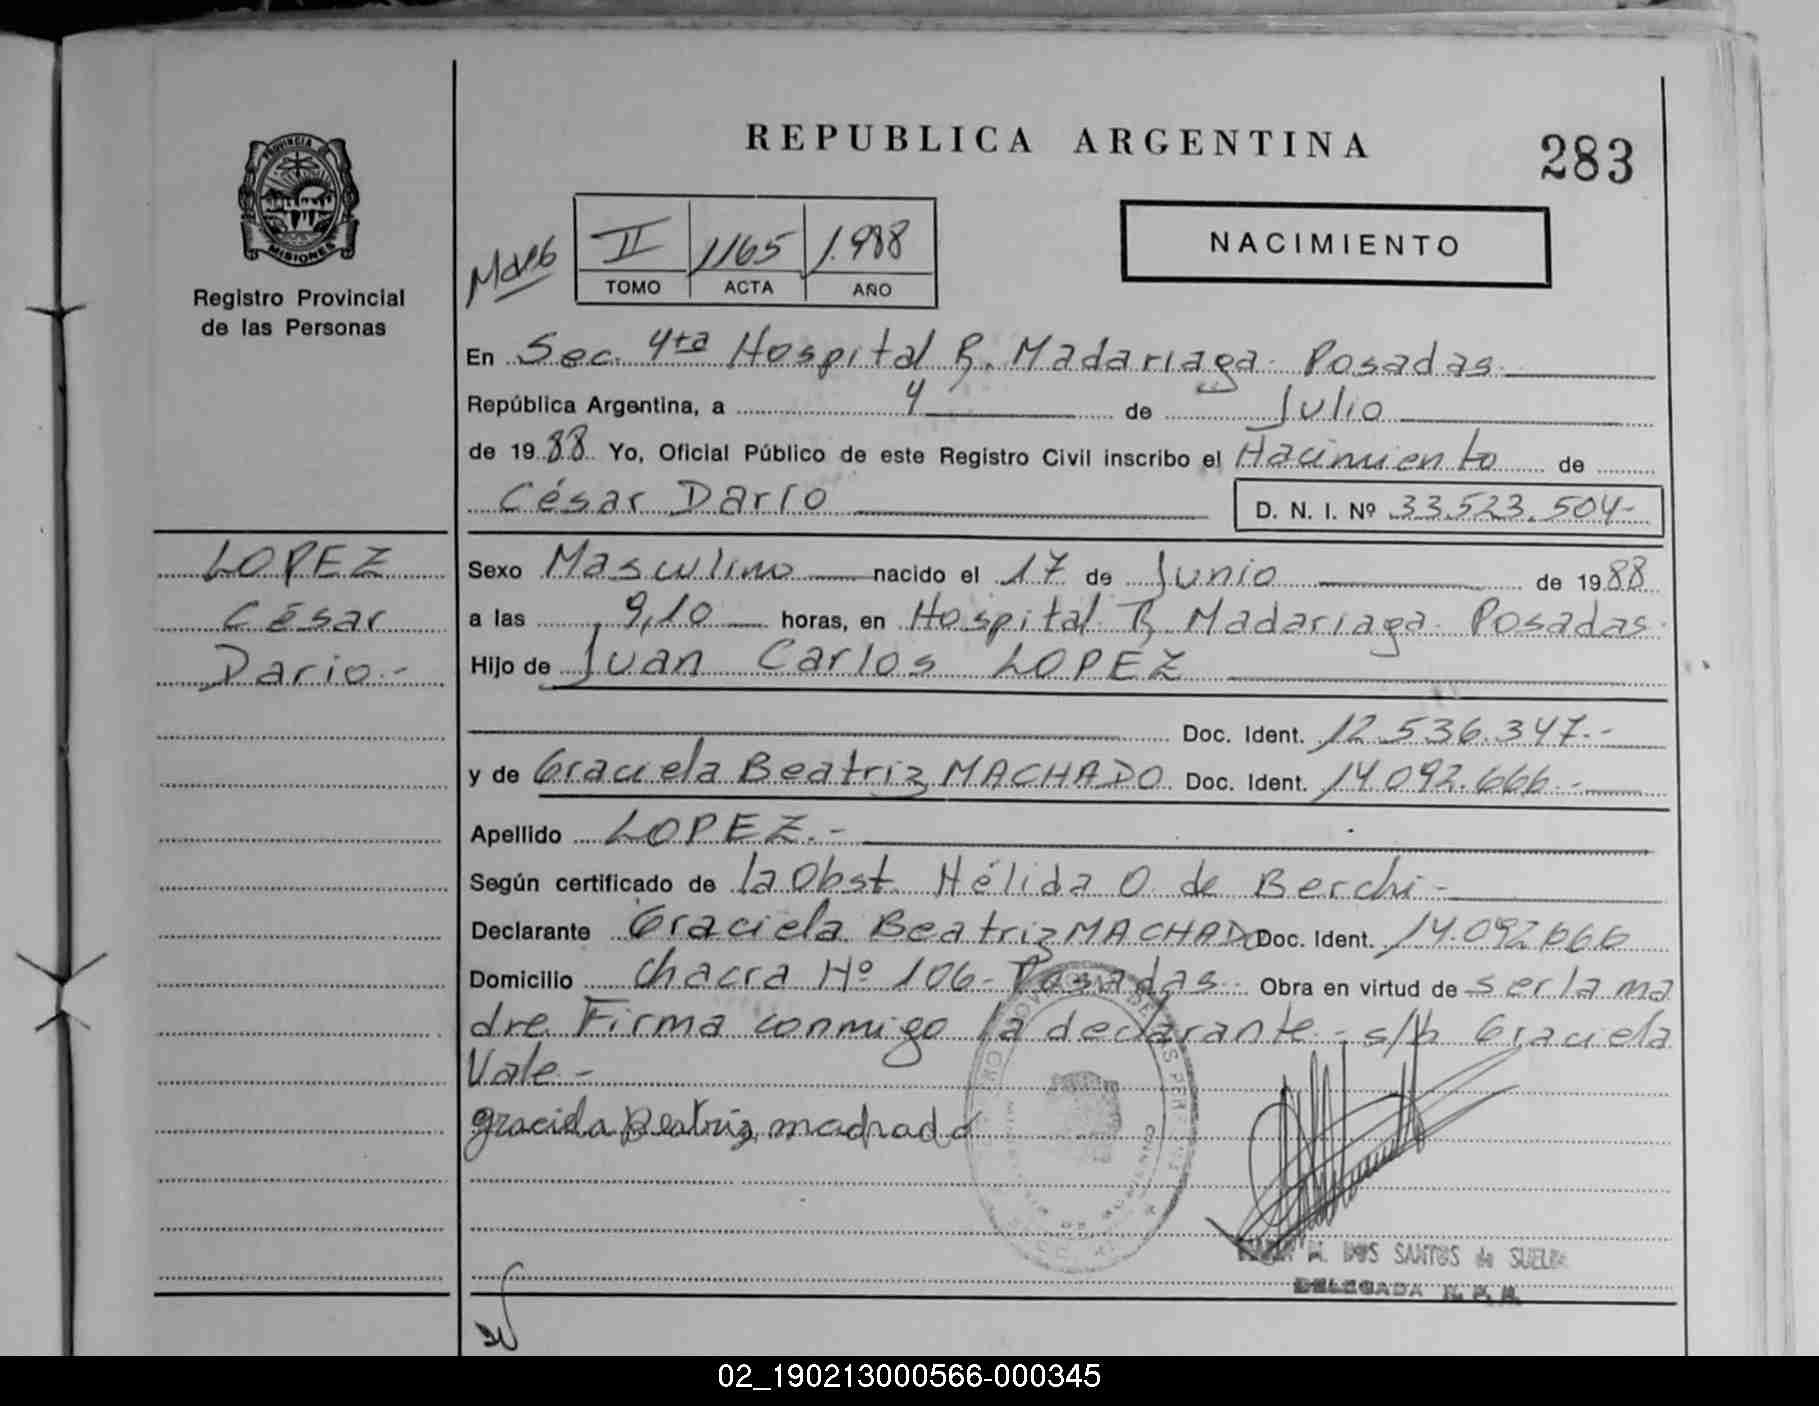 REPUBLICA ARGENTINA
283
PROVINCIA
MISIONES
Registro Provincial
de las Personas
II 1165 1.988
TOMO ACTA AÑO
NACIMIENTO
En Sec. 4ta Hospital R. Madariaga - Posadas
República Argentina, a 4 de Julio
de 1988 Yo, Oficial Público de este Registro Civil inscribo el Nacimiento de
César Darío D. N. I. Nº 33.523.504-
LOPEZ
César
Dario.-
Sexo Masculino nacido el 17 de Junio de 1988
a las 9,10 horas, en Hospital R. Madariaga - Posadas
Hijo de Juan Carlos LOPEZ
Doc. Ident. 12.536.347.-
y de Graciela Beatriz MACHADO Doc. Ident. 14.092.666.-
Apellido LOPEZ.-
Según certificado de la Obst. Nélida O. de Berchi-
Declarante Graciela Beatriz MACHADO Doc. Ident. 14.092.666
Domicilio Chacra Nº 106 - Posadas - Obra en virtud de ser la ma
dre. Firma conmigo la declarante.- s/b Graciela
Vale-
graciela Beatriz machado
M. DOS SANTOS de
DELEGADA R. P. P.
02_190213000566-000345